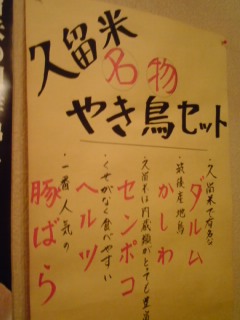 久留米
名物
やき鳥セット
・久留米で有名な
ダルム
・筑後産地鳥
かしわ
久留米は内臓類がとっても豊富
センポコ
・くせがなく食べやすい
ヘルツ
・一番人気の
豚ばら